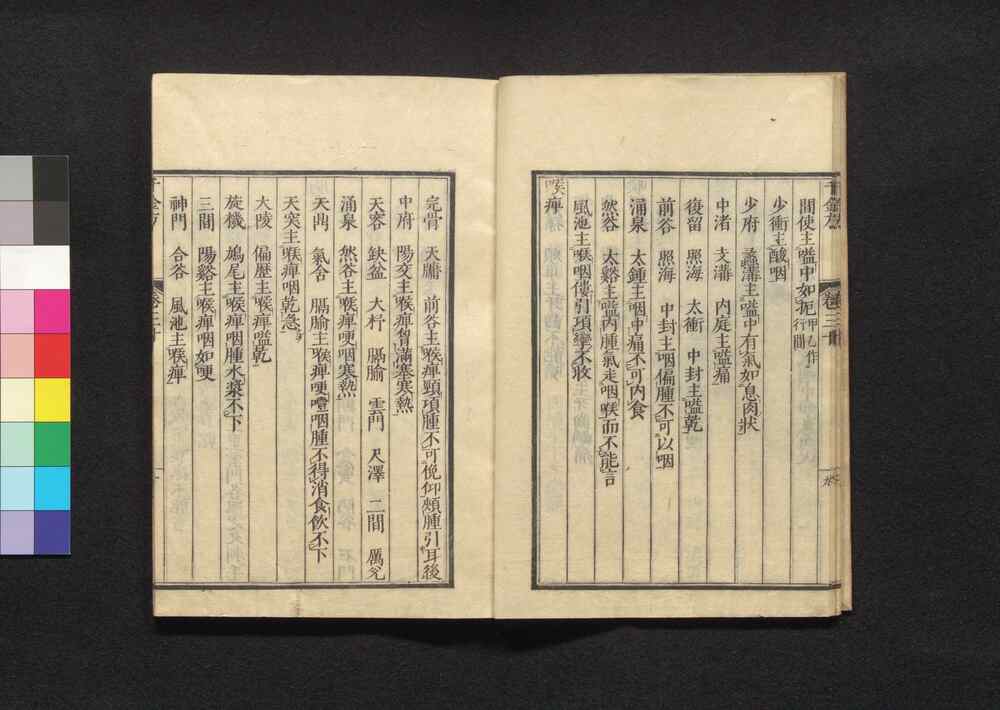 間使主嗌中如扼甲乙作行間
少衝主酸咽
少府　蠡溝主嗌中有氣如息肉狀
中渚　支溝　內庭主嗌痛
復留　照海　太衝　中封主嗌乾
前谷　照海　中封主咽偏腫不可以咽
涌泉　大鍾主咽中痛不可內食
然谷　太谿主嗌內腫氣走咽喉而不能言
風池主喉咽僂引項攣不收
喉痺
完骨　天牖　前谷主喉痺頸項腫不可俛仰頰腫引耳後
中府　陽交主喉痺胷滿塞寒熱
天容　缺盆　大杼　膈腧　雲門　尺澤　二間　厲兌
涌泉　然谷主喉痺哽咽寒熱
天鼎　氣舍　膈腧主喉痺哽噎咽腫不得消食飲不下
天突主喉痺咽乾急
大陵　偏歷主喉痺嗌乾
旋機　鳩尾主喉痺咽腫水漿不下
三間　陽谿主喉痺咽如哽
神門　合谷　風池主喉痺